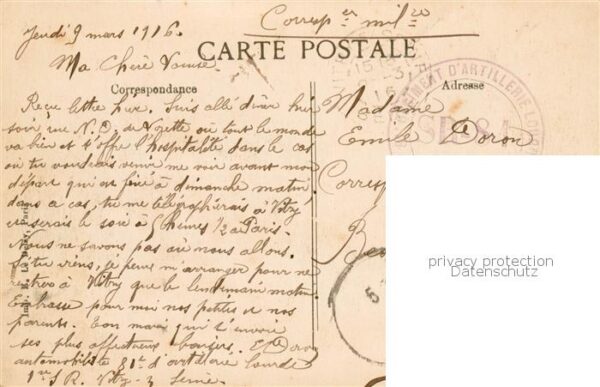 Jeudi 9 mars 1916.
Corresp ce mil re
CARTE POSTALE
Ma Chère Louise.
Correspondance
Adresse
RÉGIMENT D'ARTILLERIE LOURDE
Reçu lettre hier. Suis allé dîner hier
soir rue N. D. de où tout le monde
va bien et s'offre l'hospitalité dans le cas
où tu voudrais venir me voir avant mon
départ qui est fixé à dimanche matin
dans ce cas, tu me télégraphierais à Vitry
je serais le soir à 5 heures 1/2 à Paris.
Nous ne savons pas où nous allons.
Si tu viens, je peux m'arranger pour ne
rentrer à Vitry que le lendemain matin
Embrasse pour moi nos petites et nos
parents. Ton mari qui t'envoie
ses plus affectueux baisers. E. Doron
automobiliste 81e d'artillerie lourde
1er S. R. Vitry-s Seine
Madame
Emile Doron
Corresp
privacy protection
Datenschutz